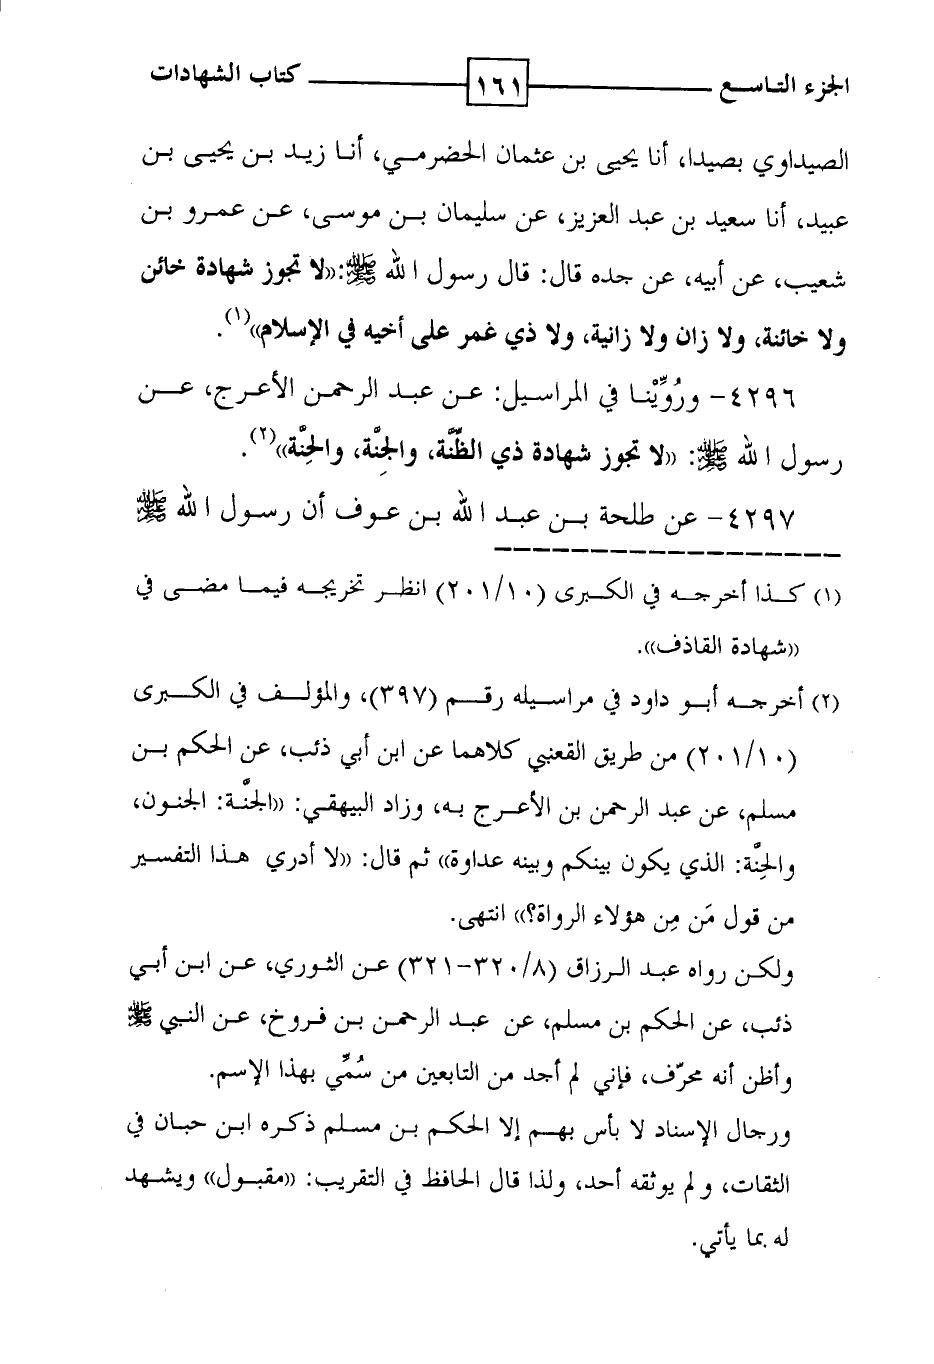 الجزء التاسع ١٦١ كتاب الشهادات
الصيداوي بصيدا، أنا يحيى بن عثمان الحضرمي، أنا زيد بن يحيى بن
عبيد، أنا سعيد بن عبد العزيز، عن سليمان بن موسى، عن عمرو بن
شعيب، عن أبيه، عن جده قال: قال رسول الله ﷺ:((لا تجوز شهادة خائن
ولا خائنة، ولا زان ولا زانية، ولا ذي غمر على أخيه في الإسلام))(١).
٤٢٩٦- ورُوِّيْنا في المراسيل: عن عبد الرحمن الأعرج، عن
رسول الله ﷺ: ((لا تجوز شهادة ذي الظِّنَّة، والجنَّة، والحِنَّة))(٢).
٤٢٩٧- عن طلحة بن عبد الله بن عوف أن رسول الله ﷺ
(١) كذا أخرجه في الكبرى (٢٠١/١٠) انظر تخريجه فيما مضى في
((شهادة القاذف)).
(٢) أخرجه أبو داود في مراسيله رقم (٣٩٧)، والمؤلف في الكبرى
(٢٠١/١٠) من طريق القعنبي كلاهما عن ابن أبي ذئب، عن الحكم بن
مسلم، عن عبد الرحمن بن الأعرج به، وزاد البيهقي: ((الجنَّة: الجنون،
والحِنَّة: الذي يكون بينكم وبينه عداوة)) ثم قال: ((لا أدري هذا التفسير
من قول مَن مِن هؤلاء الرواة؟)) انتهى.
ولكن رواه عبد الرزاق (٣٢٠/٨-٣٢١) عن الثوري، عن ابن أبي
ذئب، عن الحكم بن مسلم، عن عبد الرحمن بن فروخ، عن النبي ﷺ
وأظن أنه محرّف، فإني لم أجد من التابعين من سُمِّي بهذا الإسم.
ورجال الإسناد لا بأس بهم إلا الحكم بن مسلم ذكره ابن حبان في
الثقات، ولم يوثقه أحد، ولذا قال الحافظ في التقريب: ((مقبول)) ويشهد
له بما يأتي.